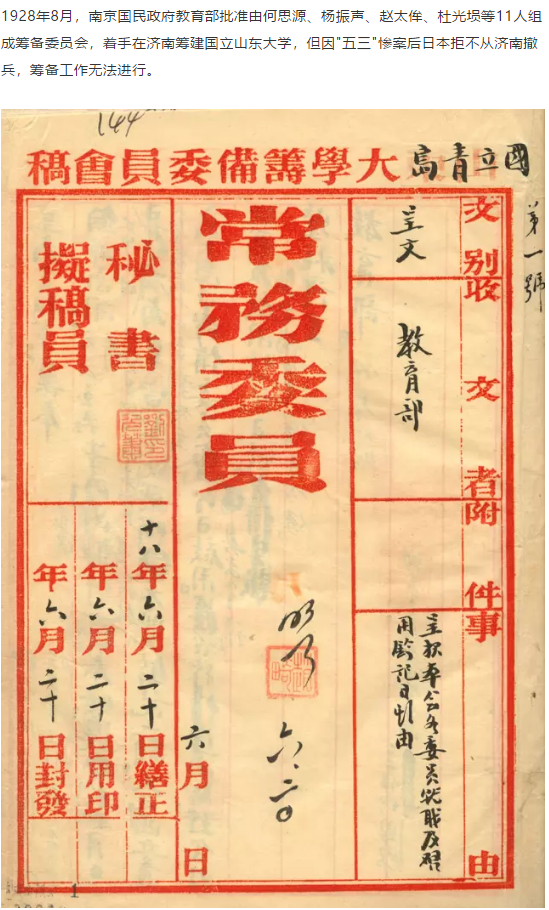 1928年8月，南京国民政府教育部批准由何思源、杨振声、赵太侔、杜光埙等11人组
成筹备委员会，着手在济南筹建国立山东大学，但因"五三"惨案后日本拒不从济南撤
兵，筹备工作无法进行。
144
國立青島大學籌備委員會稿
第一號
文別
呈文
收文者
教育部
附件
事由
呈報本會各委員就職及啓
用鈐記日期由
常務委員
六.二〇
六月 日
秘書
擬稿員
十八年六月二十日繕正
年六月二十日用印
年六月二十日封發
1